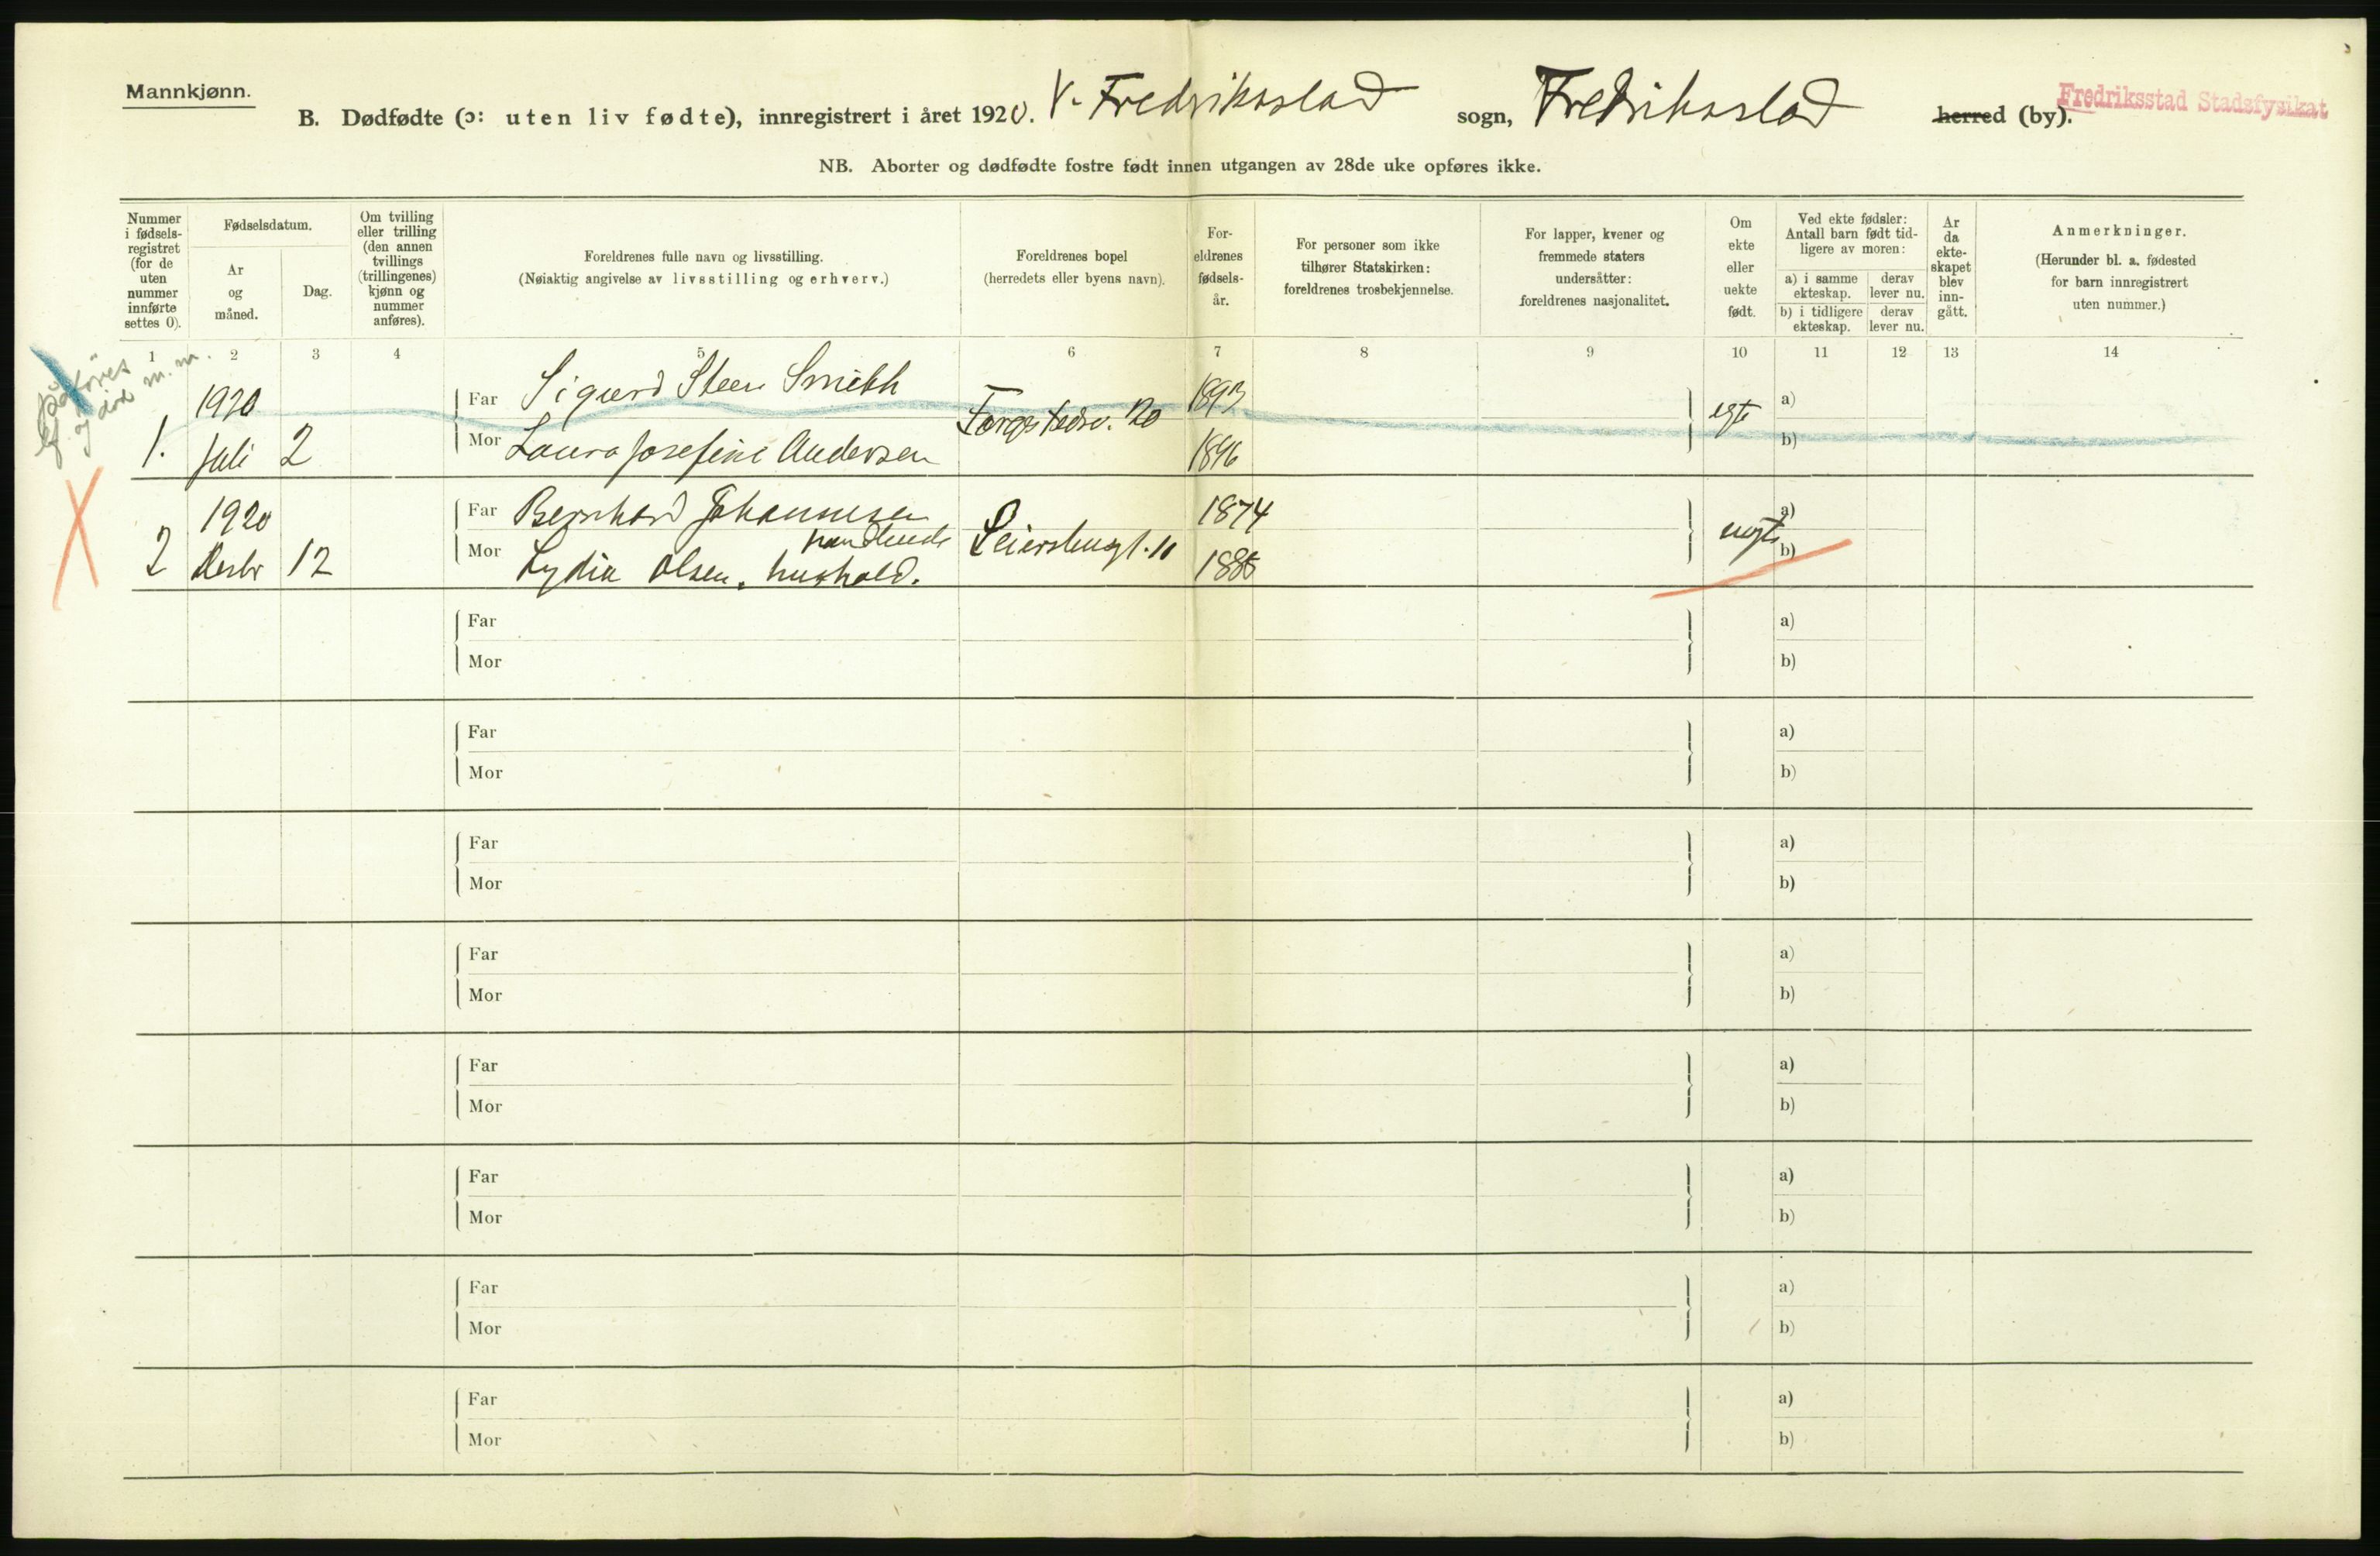 Mannkjønn.
B. Dødfødte (ɔ: uten liv fødte), innregistrert i året 1920. V. Fredriksstad sogn, Fredriksstad herred (by).
Fredriksstad Stadsfysikat
NB. Aborter og dødfødte fostre født innen utgangen av 28de uke opføres ikke.
Nummer i fødsels-registret (for de uten nummer innførte settes 0).
Fødselsdatum.
Ar og måned.
Dag.
Om tvilling eller trilling (den annen tvillings (trillingenes) kjønn og nummer anføres).
Foreldrenes fulle navn og livsstilling.
(Nøiaktig angivelse av livsstilling og erhverv.)
Foreldrenes bopel
(herredets eller byens navn).
For-eldrenes fødsels-år.
For personer som ikke tilhører Statskirken: foreldrenes trosbekjennelse.
For lapper, kvener og fremmede staters undersåtter: foreldrenes nasjonalitet.
Om ekte eller uekte født.
Ved ekte fødsler: Antall barn født tid-ligere av moren:
a) i samme ekteskap.
derav lever nu.
b) i tidligere ekteskap.
derav lever nu.
Ar da ekte-skapet blev inn-gått.
Anmerkninger.
(Herunder bl. a. fødested for barn innregistrert uten nummer.)
1 2 3 4 5 6 7 8 9 10 11 12 13 14
påføres
død m. m.
1. 1920 Juli 2
Far Sigurd Steen Smith 1893
Mor Laura Josefine Andersen 1896
Torgstedsv. 20
egte
a)
b)
2 1920 Desbr 12
Far Bernhard Johannesen handlende 1874
Mor Lydia Olsen. hushold. 1885
Leiersbugt. 11
uegte
a)
b)
Far a)
Mor b)
Far a)
Mor b)
Far a)
Mor b)
Far a)
Mor b)
Far a)
Mor b)
Far a)
Mor b)
Far a)
Mor b)
Far a)
Mor b)